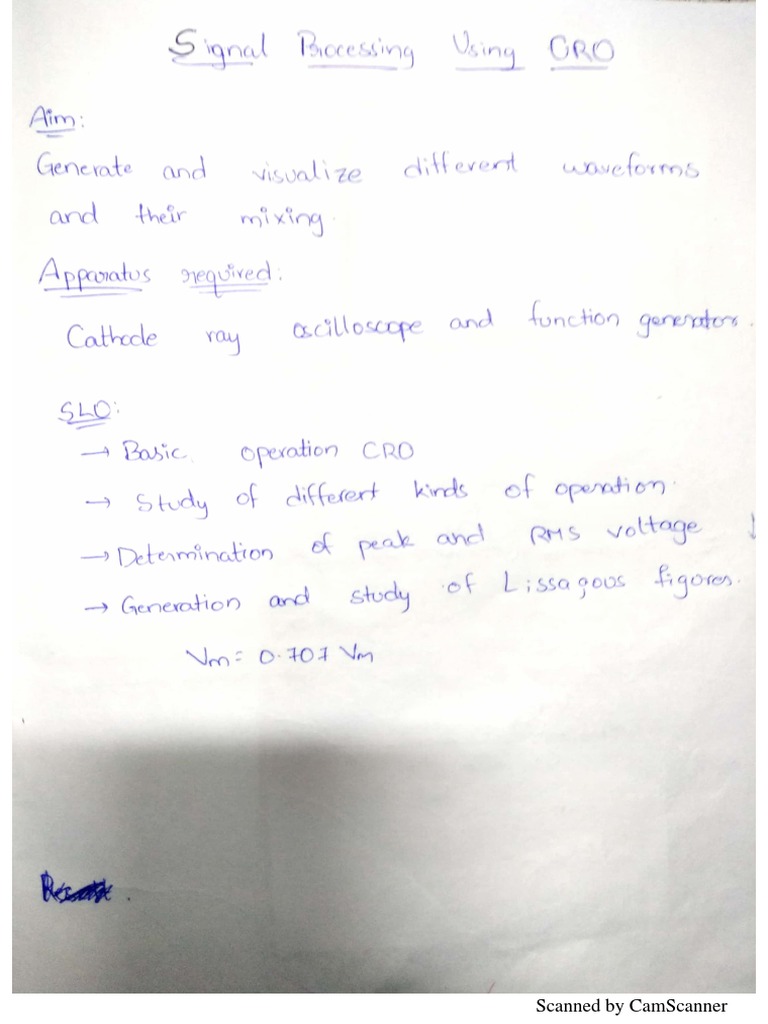 Signal Processing Using CRO
Aim:
Generate and visualize different waveforms
and their mixing.
Apparatus required:
Cathode ray oscilloscope and function generators.
SLO:
→ Basic operation CRO
→ Study of different kinds of operation.
→ Determination of peak and RMS voltage
→ Generation and study of Lissagous figures.
Vm = 0.707 Vm
Scanned by CamScanner